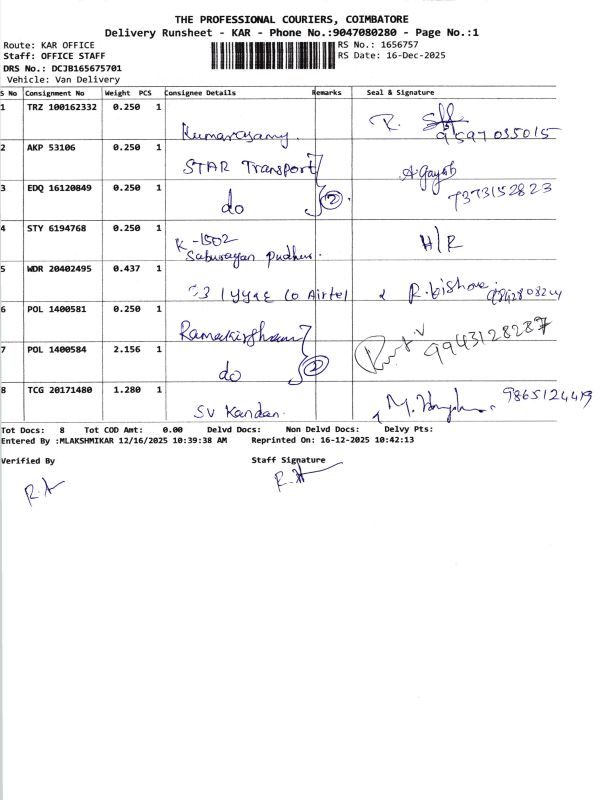 THE PROFESSIONAL COURIERS, COIMBATORE
Delivery Runsheet - KAR - Phone No.:9047080280 - Page No.:1
Route: KAR OFFICE RS No.: 1656757
Staff: OFFICE STAFF RS Date: 16-Dec-2025
DRS No.: DCJB165675701
Vehicle: Van Delivery
S No Consignment No Weight PCS Consignee Details Remarks Seal & Signature
1 TRZ 100162332 0.250 1
Kumarasamy. R. 9597035015
2 AKP 53106 0.250 1
STAR Transport
3 EDQ 16120849 0.250 1
do 2 7373152823
4 STY 6194768 0.250 1
K-1502 H/R
Saburayan pudhur.
5 WDR 20402495 0.437 1
Airtel R.
6 POL 1400581 0.250 1
9943128287
7 POL 1400584 2.156 1
do 2
8 TCG 20171480 1.280 1
SV Kandan. M. 9865124419
Tot Docs: 8 Tot COD Amt: 0.00 Delvd Docs: Non Delvd Docs: Delvy Pts:
Entered By :MLAKSHMIKAR 12/16/2025 10:39:38 AM Reprinted On: 16-12-2025 10:42:13
Verified By Staff Signature